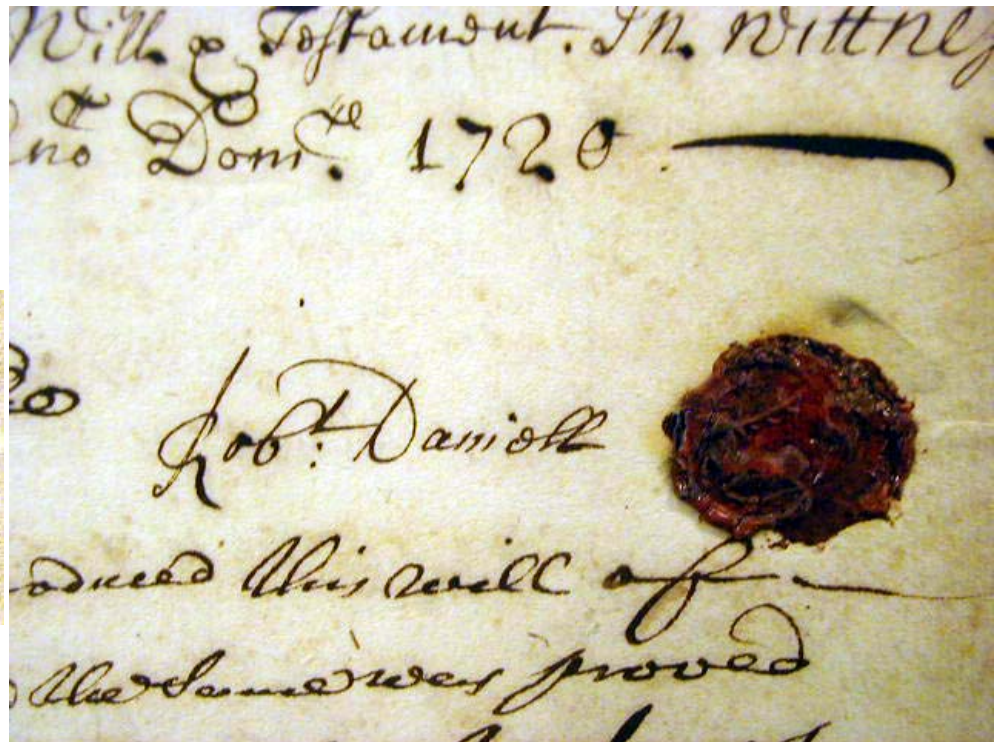 Will & Testament. In Wittnes
no Dom. 1720
Robt. Daniell
oduced this will off
the Same was proved